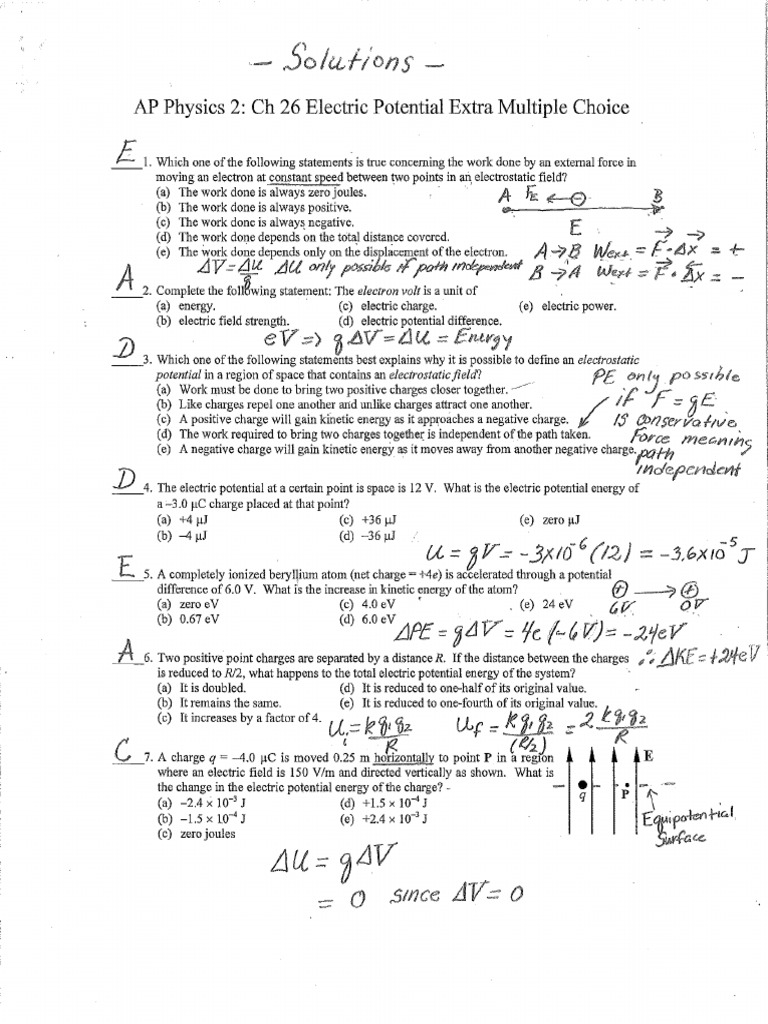 - Solutions -
AP Physics 2: Ch 26 Electric Potential Extra Multiple Choice
E 1. Which one of the following statements is true concerning the work done by an external force in
moving an electron at constant speed between two points in an electrostatic field?
(a) The work done is always zero joules.
(b) The work done is always positive.
(c) The work done is always negative.
(d) The work done depends on the total distance covered.
(e) The work done depends only on the displacement of the electron.
A FE ← ⊖ B
E
A→B Wext = F · Δx = +
B→A Wext = F · Δx = -
ΔV = ΔU/q ΔU only possible if path independent
A 2. Complete the following statement: The electron volt is a unit of
(a) energy. (c) electric charge. (e) electric power.
(b) electric field strength. (d) electric potential difference.
eV => qΔV = ΔU = Energy
D 3. Which one of the following statements best explains why it is possible to define an electrostatic
potential in a region of space that contains an electrostatic field?
(a) Work must be done to bring two positive charges closer together.
(b) Like charges repel one another and unlike charges attract one another.
(c) A positive charge will gain kinetic energy as it approaches a negative charge.
(d) The work required to bring two charges together is independent of the path taken.
(e) A negative charge will gain kinetic energy as it moves away from another negative charge.
PE only possible
if F = qE
is conservative
Force meaning
path
independent
D 4. The electric potential at a certain point is space is 12 V. What is the electric potential energy of
a –3.0 μC charge placed at that point?
(a) +4 μJ (c) +36 μJ (e) zero μJ
(b) –4 μJ (d) –36 μJ
U = qV = -3x10⁻⁶ (12) = -3.6x10⁻⁵ J
E 5. A completely ionized beryllium atom (net charge = +4e) is accelerated through a potential
difference of 6.0 V. What is the increase in kinetic energy of the atom?
(a) zero eV (c) 4.0 eV (e) 24 eV
(b) 0.67 eV (d) 6.0 eV
⊕ → ⊕
6V 0V
ΔPE = qΔV = 4e (-6V) = -24eV
∴ ΔKE = +24eV
A 6. Two positive point charges are separated by a distance R. If the distance between the charges
is reduced to R/2, what happens to the total electric potential energy of the system?
(a) It is doubled. (d) It is reduced to one-half of its original value.
(b) It remains the same. (e) It is reduced to one-fourth of its original value.
(c) It increases by a factor of 4.
Ui = kq₁q₂/R Uf = kq₁q₂/(R/2) = 2 kq₁q₂/R
C 7. A charge q = –4.0 μC is moved 0.25 m horizontally to point P in a region
where an electric field is 150 V/m and directed vertically as shown. What is
the change in the electric potential energy of the charge?
(a) –2.4 × 10⁻³ J (d) +1.5 × 10⁻⁴ J
(b) –1.5 × 10⁻⁴ J (e) +2.4 × 10⁻³ J
(c) zero joules
E
q P
Equipotential
Surface
ΔU = qΔV
= 0 since ΔV = 0